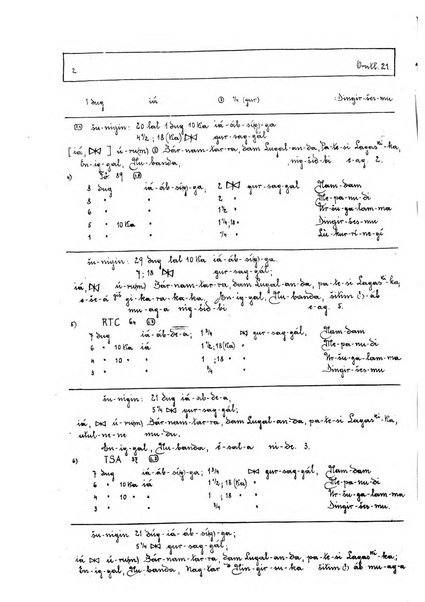 2 Orntl. 21.
1 dug iá ¼ (gur) Dingir-šeš-mu
šu-nigin: 20 lal 1 dug 10 Ka iá-áb-si(g)-ga
4½; 18 (Ka) gur-sag-gál
[iá, ] ú-rum) Bár-nam-tar-ra, dam Lugal-an-da, Pa-te-si Lagaš-ka,
En-ig-gal, Nu-banda, níg-šid-bi e-ag. 2.
4)
8 dug iá-áb-si(g)-ga, 2 gur-sag-gál Nam-dam
8 " " 2 " Me-pa-nu-di
8 " " 1½ " Ur-šu-ga-lam-ma
5 " 10 Ka " ¼; 18 " Dingir-šeš-mu
1 " " ¼ " Lú-kur-ri-ne-gí
šu-nigin: 29 dug lal 10 Ka iá-áb-si(g)-ga
7; 18 gur-sag-gál;
iá, ú-rum) Bár-nam-tar-ra, dam Lugal-an-da, pa-te-si Lagaš-ka,
gi-ka-ra-ka-ka, En-ig-gal, Nu-banda,
mu-ag-a níg-šid-bi e-ag. 5.
5) RTC 64
7 dug iá-áb-de-a; 1¾ gur-sag-gál, Nam-dam
6 " 10 Ka iá 1½; 18 (Ka) " Me-pa-nu-di
4 " 10 " " 1; 18 " Ur-šu-ga-lam-ma
3 " " ¾ " Dingir-šeš-mu
šu-nigin: 21 dug iá-áb-de-a,
5¼ gur-sag-gál;
iá, ú-rum) Bár-nam-tar-ra, dam Lugal-an-da, pa-te-si Lagaš-ka,
udul-ne-ne mu-du.
En-ig-gal, Nu-banda, é-sal-a ni-de. 3.
6) TSA 37
7 dug iá-áb-si(g)-ga; 1¾ gur-sag-gál, Nam-dam
6 " 10 Ka iá 1½; 18 (Ka) " Me-pa-nu-di
4 " 10 " " 1; 18 " Ur-šu-ga-lam-ma
3 " " ¾ " Dingir-šeš-mu
šu-nigin 21 dug iá-áb-si(g)-ga;
5¼ gur-sag-gál;
iá, ú-rum) Bár-nam-tar-ra, dam Lugal-an-da, pa-te-si Lagaš-ka;
En-ig-gal, Nu-banda, Nin-gír-su-ka áb mu-ag-a